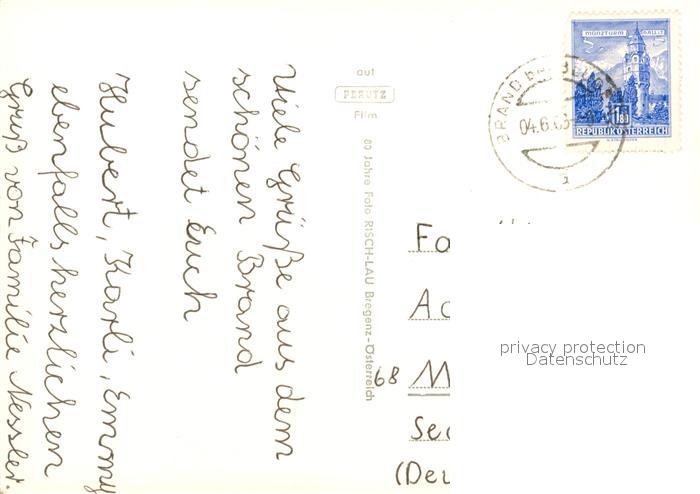 Viele Grüße aus dem
schönen Brand
sendet Euch
Hubert, Karli, Emmy
ebenfalls herzlichen
Gruß von Familie Nessler.
auf
PERUTZ
Film
80 Jahre Foto RISCH-LAU Bregenz-Österreich
MÜNZTURM HALL i.T.
1.80
REPUBLIK ÖSTERREICH
BRAND BEI BLUDENZ
04.6.63
a
Fa
Ac
68 M
See
(Deu
privacy protection
Datenschutz